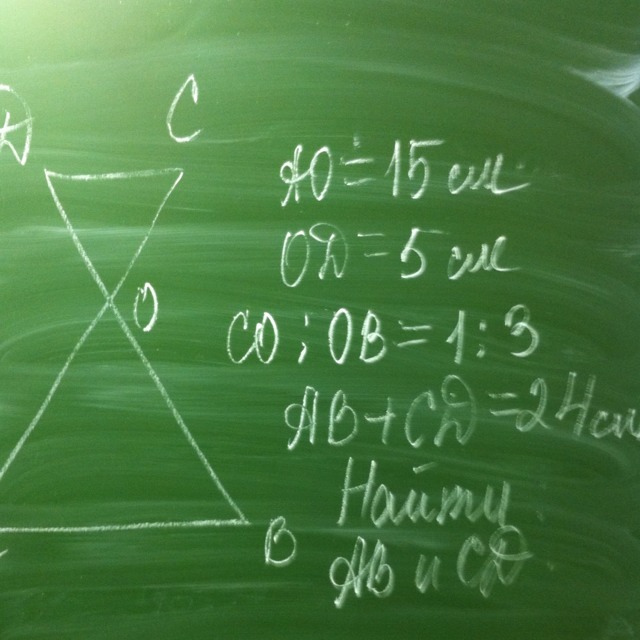 D
C
AO = 15 см
OD = 5 см
O
CO : OB = 1 : 3
AB + CD = 24 см
Найти
B
AB и CD